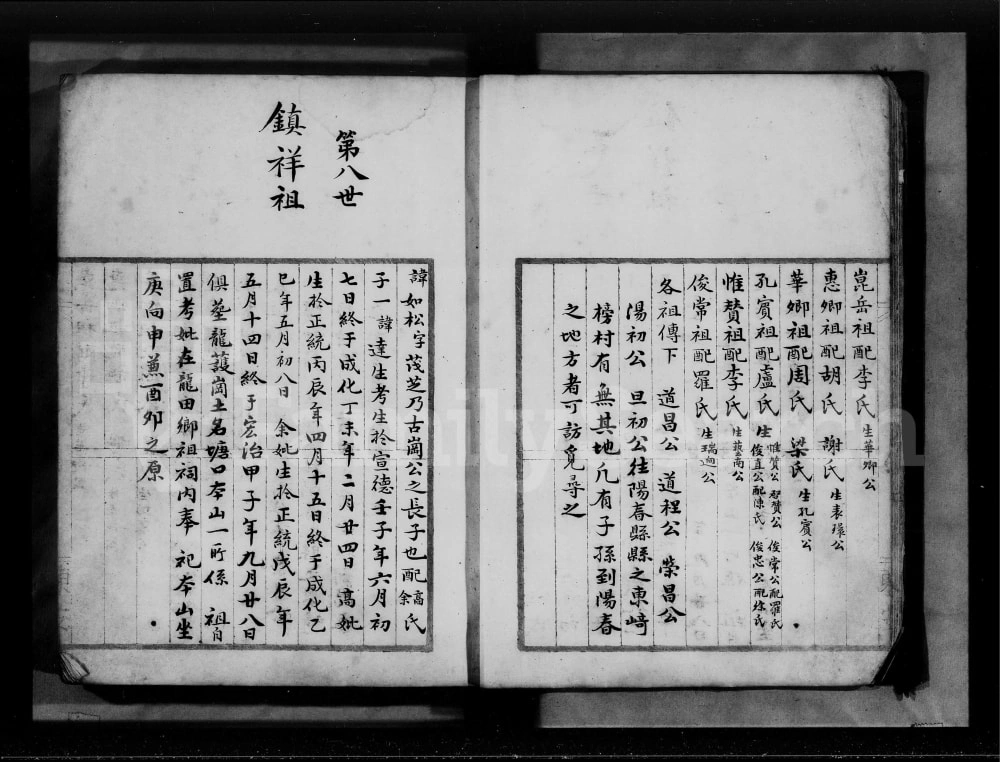 崑岳祖配李氏 生華卿公
惠卿祖配胡氏 謝氏 生表環公
華卿祖配周氏 梁氏 生孔賓公
孔賓祖配盧氏 生 惟贊公 俊常公配羅氏 俊直公配陳氏 俊忠公配
惟賛祖配李氏 生藝南公
俊常祖配羅氏 生瑞迪公
各祖傳下 道昌公 道程公 榮昌公
湯初公 旦初公往陽春縣縣之東崎
榜村有無其地凢有子孫到陽春
之地方者可訪覓尋之
第八世
鎮祥祖
諱如松字茂芝乃古崗公之長子也配高余氏
子一諱達生考生於宣德壬子年六月初
七日終于成化丁未年二月廿四日 高妣
生於正統丙辰年四月十五日終于成化乙
巳年五月初八日 余妣生於正統戊辰年
五月十四日終于宏治甲子年九月廿八日
俱塟龍護崗土名塘口夲山一所係 祖自
置考妣在龍田鄉祖祠内奉 祀夲山坐
庚向申兼酉夘之原